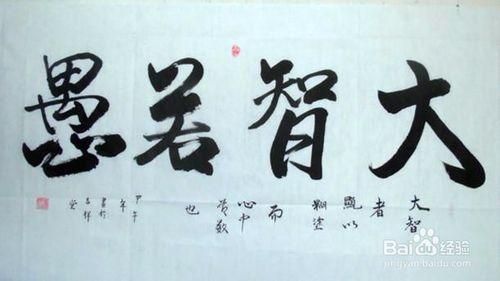 大智若愚
大智
者
顯以
糊塗
而
心中
有數
也
甲午
年
書於
吉祥
堂
Baidu经验
jingyan.baidu.com